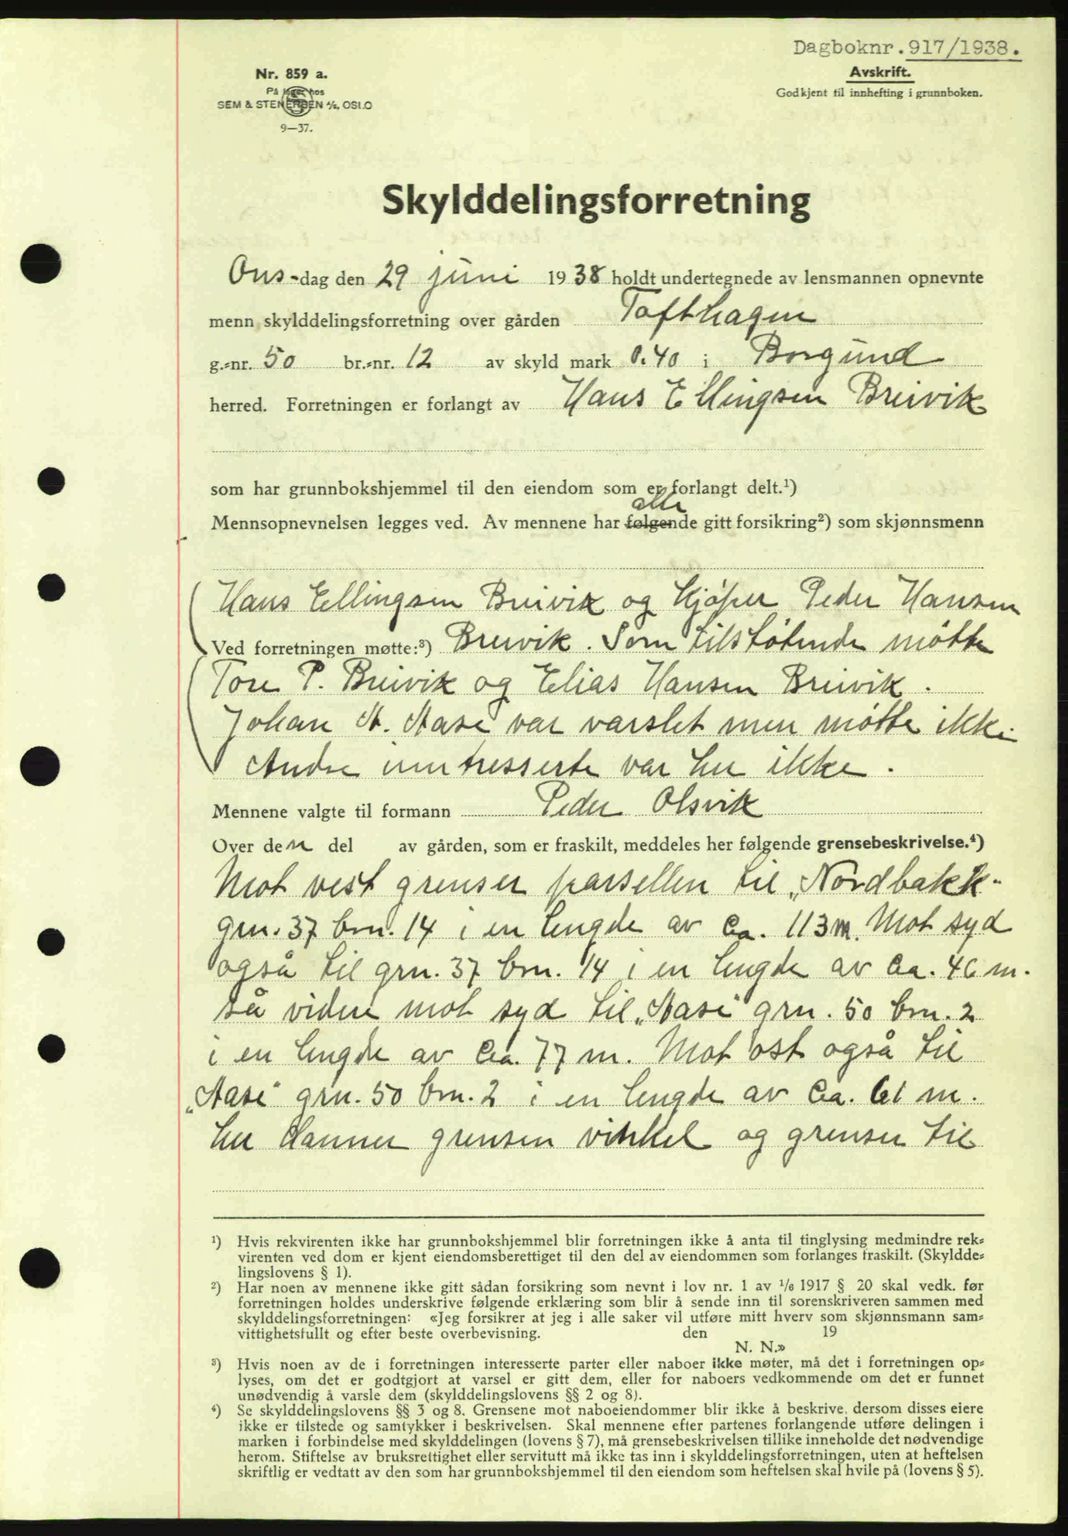 Dagboknr. 917/1938.
Nr. 859 a.
På lager hos
SEM & STENERSEN A/S, OSLO
9—37.
Avskrift.
Godkjent til innhefting i grunnboken.
Skylddelingsforretning
Ons-dag den 29 juni 1938 holdt undertegnede av lensmannen opnevnte
menn skylddelingsforretning over gården Tofthagen
g.-nr. 50 br.-nr. 12 av skyld mark 0.40 i Borgund
herred. Forretningen er forlangt av Hans Ellingsen Breivik
som har grunnbokshjemmel til den eiendom som er forlangt delt.¹)
alle
Mennsopnevnelsen legges ved. Av mennene har følgende gitt forsikring²) som skjønnsmenn
Hans Ellingsen Breivik og kjøper Peder Hansen
Ved forretningen møtte:³) Breivik. Som tilstøtende møtte
Tore P. Breivik og Elias Hansen Breivik.
Johan A. Aase var varslet men møtte ikke.
Andre inntresserte var her ikke.
Mennene valgte til formann Peder Olsvik
Over den del av gården, som er fraskilt, meddeles her følgende grensebeskrivelse.⁴)
Mot vest grenser parsellen til „Nordbakk"
grn. 37 brn. 14 i en lengde av ca. 113 m. Mot syd
også til grn. 37 brn. 14 i en lengde av ca. 46 m.
så videre mot syd til „Aase" grn. 50 brn. 2
i en lengde av ca. 77 m. Mot ost også til
„Aase" grn. 50 brn. 2 i en lengde av ca. 61 m.
her danner grensen vinkel og grenser til
¹) Hvis rekvirenten ikke har grunnbokshjemmel blir forretningen ikke å anta til tinglysing medmindre rek-
virenten ved dom er kjent eiendomsberettiget til den del av eiendommen som forlanges fraskilt. (Skyldde-
lingslovens § 1).
²) Har noen av mennene ikke gitt sådan forsikring som nevnt i lov nr. 1 av ¹/₆ 1917 § 20 skal vedk. før
forretningen holdes underskrive følgende erklæring som blir å sende inn til sorenskriveren sammen med
skylddelingsforretningen: «Jeg forsikrer at jeg i alle saker vil utføre mitt hverv som skjønnsmann sam-
vittighetsfullt og efter beste overbevisning. den 19
N. N.»
³) Hvis noen av de i forretningen interesserte parter eller naboer ikke møter, må det i forretningen op-
lyses, om det er godtgjort at varsel er gitt dem, eller for naboers vedkommende om det er funnet
unødvendig å varsle dem (skylddelingslovens §§ 2 og 8).
⁴) Se skylddelingslovens §§ 3 og 8. Grensene mot naboeiendommer blir ikke å beskrive, dersom disses eiere
ikke er tilstede og samtykker i beskrivelsen. Skal mennene efter partenes forlangende utføre delingen i
marken i forbindelse med skylddelingen (lovens § 7), må grensebeskrivelsen tillike inneholde det nødvendige
herom. Stiftelse av bruksrettighet eller servitutt må ikke tas inn i skylddelingsforretningen, uten at heftelsen
skriftlig er vedtatt av den som har grunnbokshjemmel til den eiendom som heftelsen skal hvile på (lovens § 5).